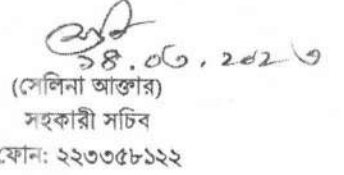 ১৪.০৬.২০২৩
(সেলিনা আক্তার)
সহকারী সচিব
ফোন: ২২৩৩৫৮১২২